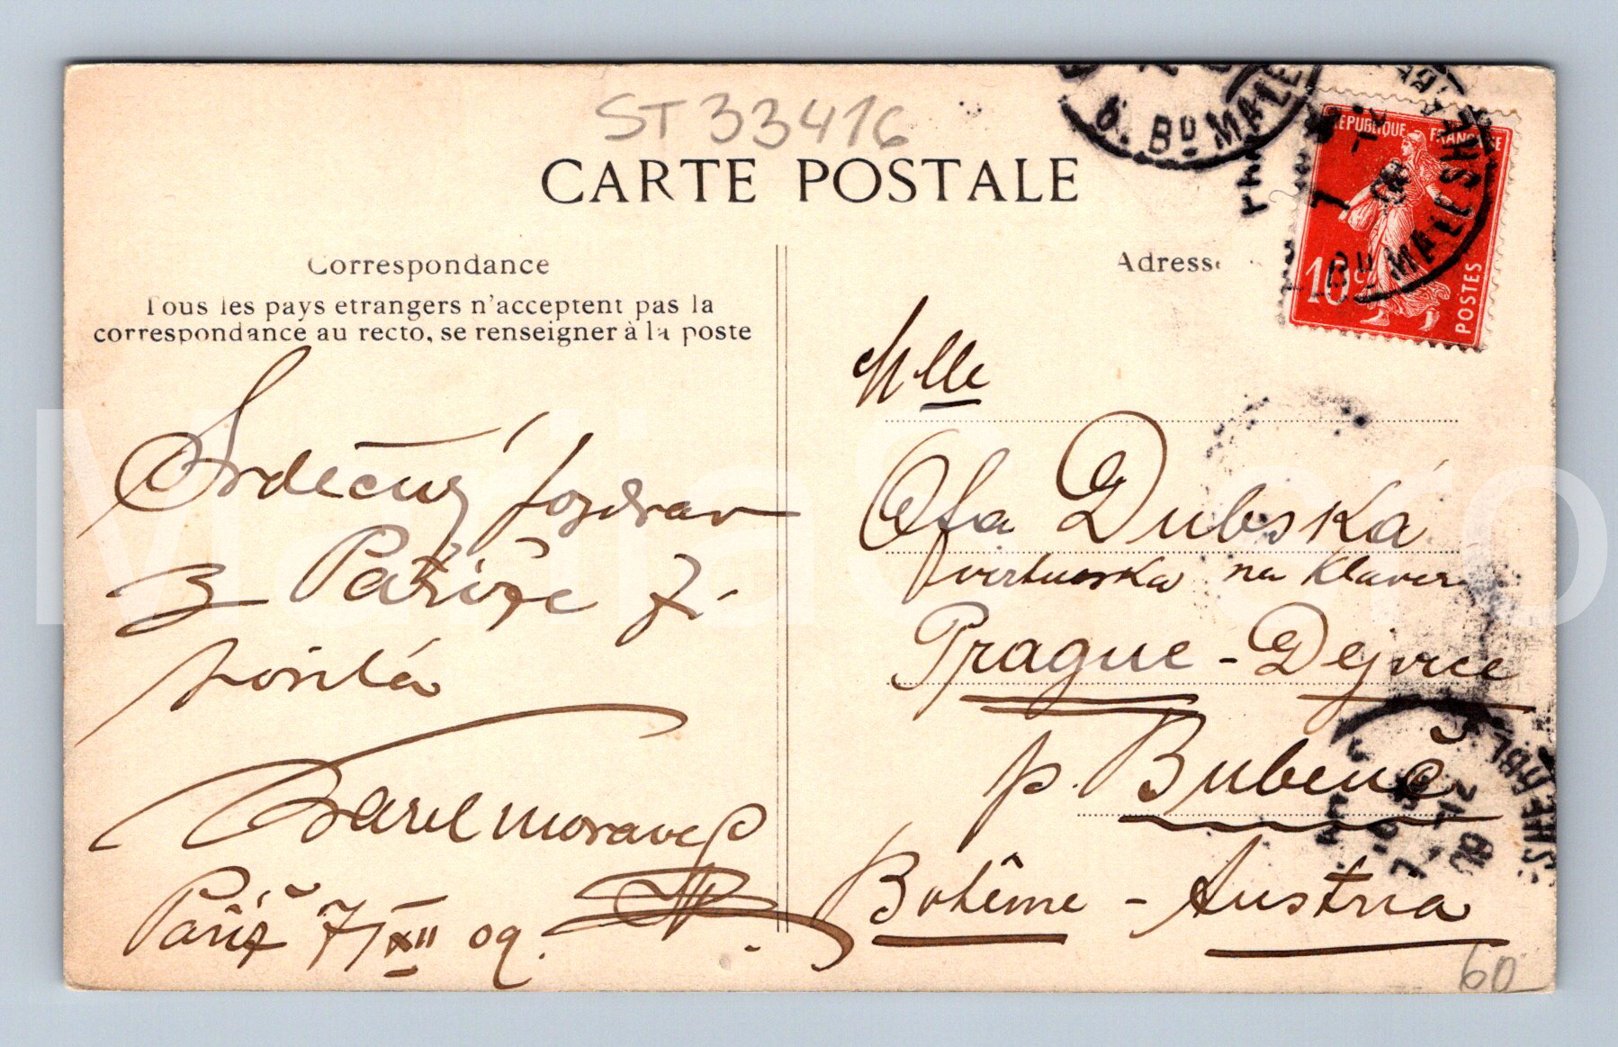 ST 33416
CARTE POSTALE
Correspondance
Tous les pays etrangers n'acceptent pas la
correspondance au recto, se renseigner à la poste
Adresse
REPUBLIQUE FRANCAISE
10c
POSTES
Bd MALESHERBES
Srdečný pozdrav
z Paříže
zasílá
Karel Moravec
Paříž 7/XII 09.
Mlle
Ofa Dubská
virtuoska na klavír
Prague - Dejvice
p. Bubeneč
Bohême - Austria
60